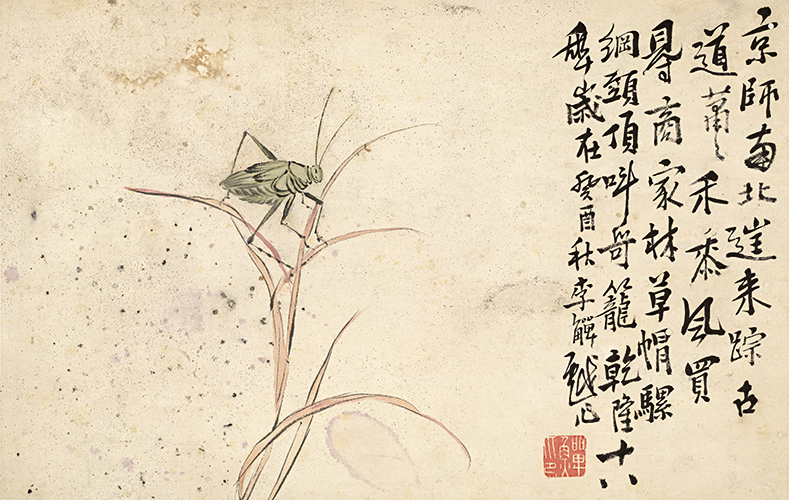 京師南北遞來踪古
道蕭々禾黍風買
得商家林草帽騾
綱頭頂叫哥籠乾隆十八
年歲在癸酉秋李觶戲作